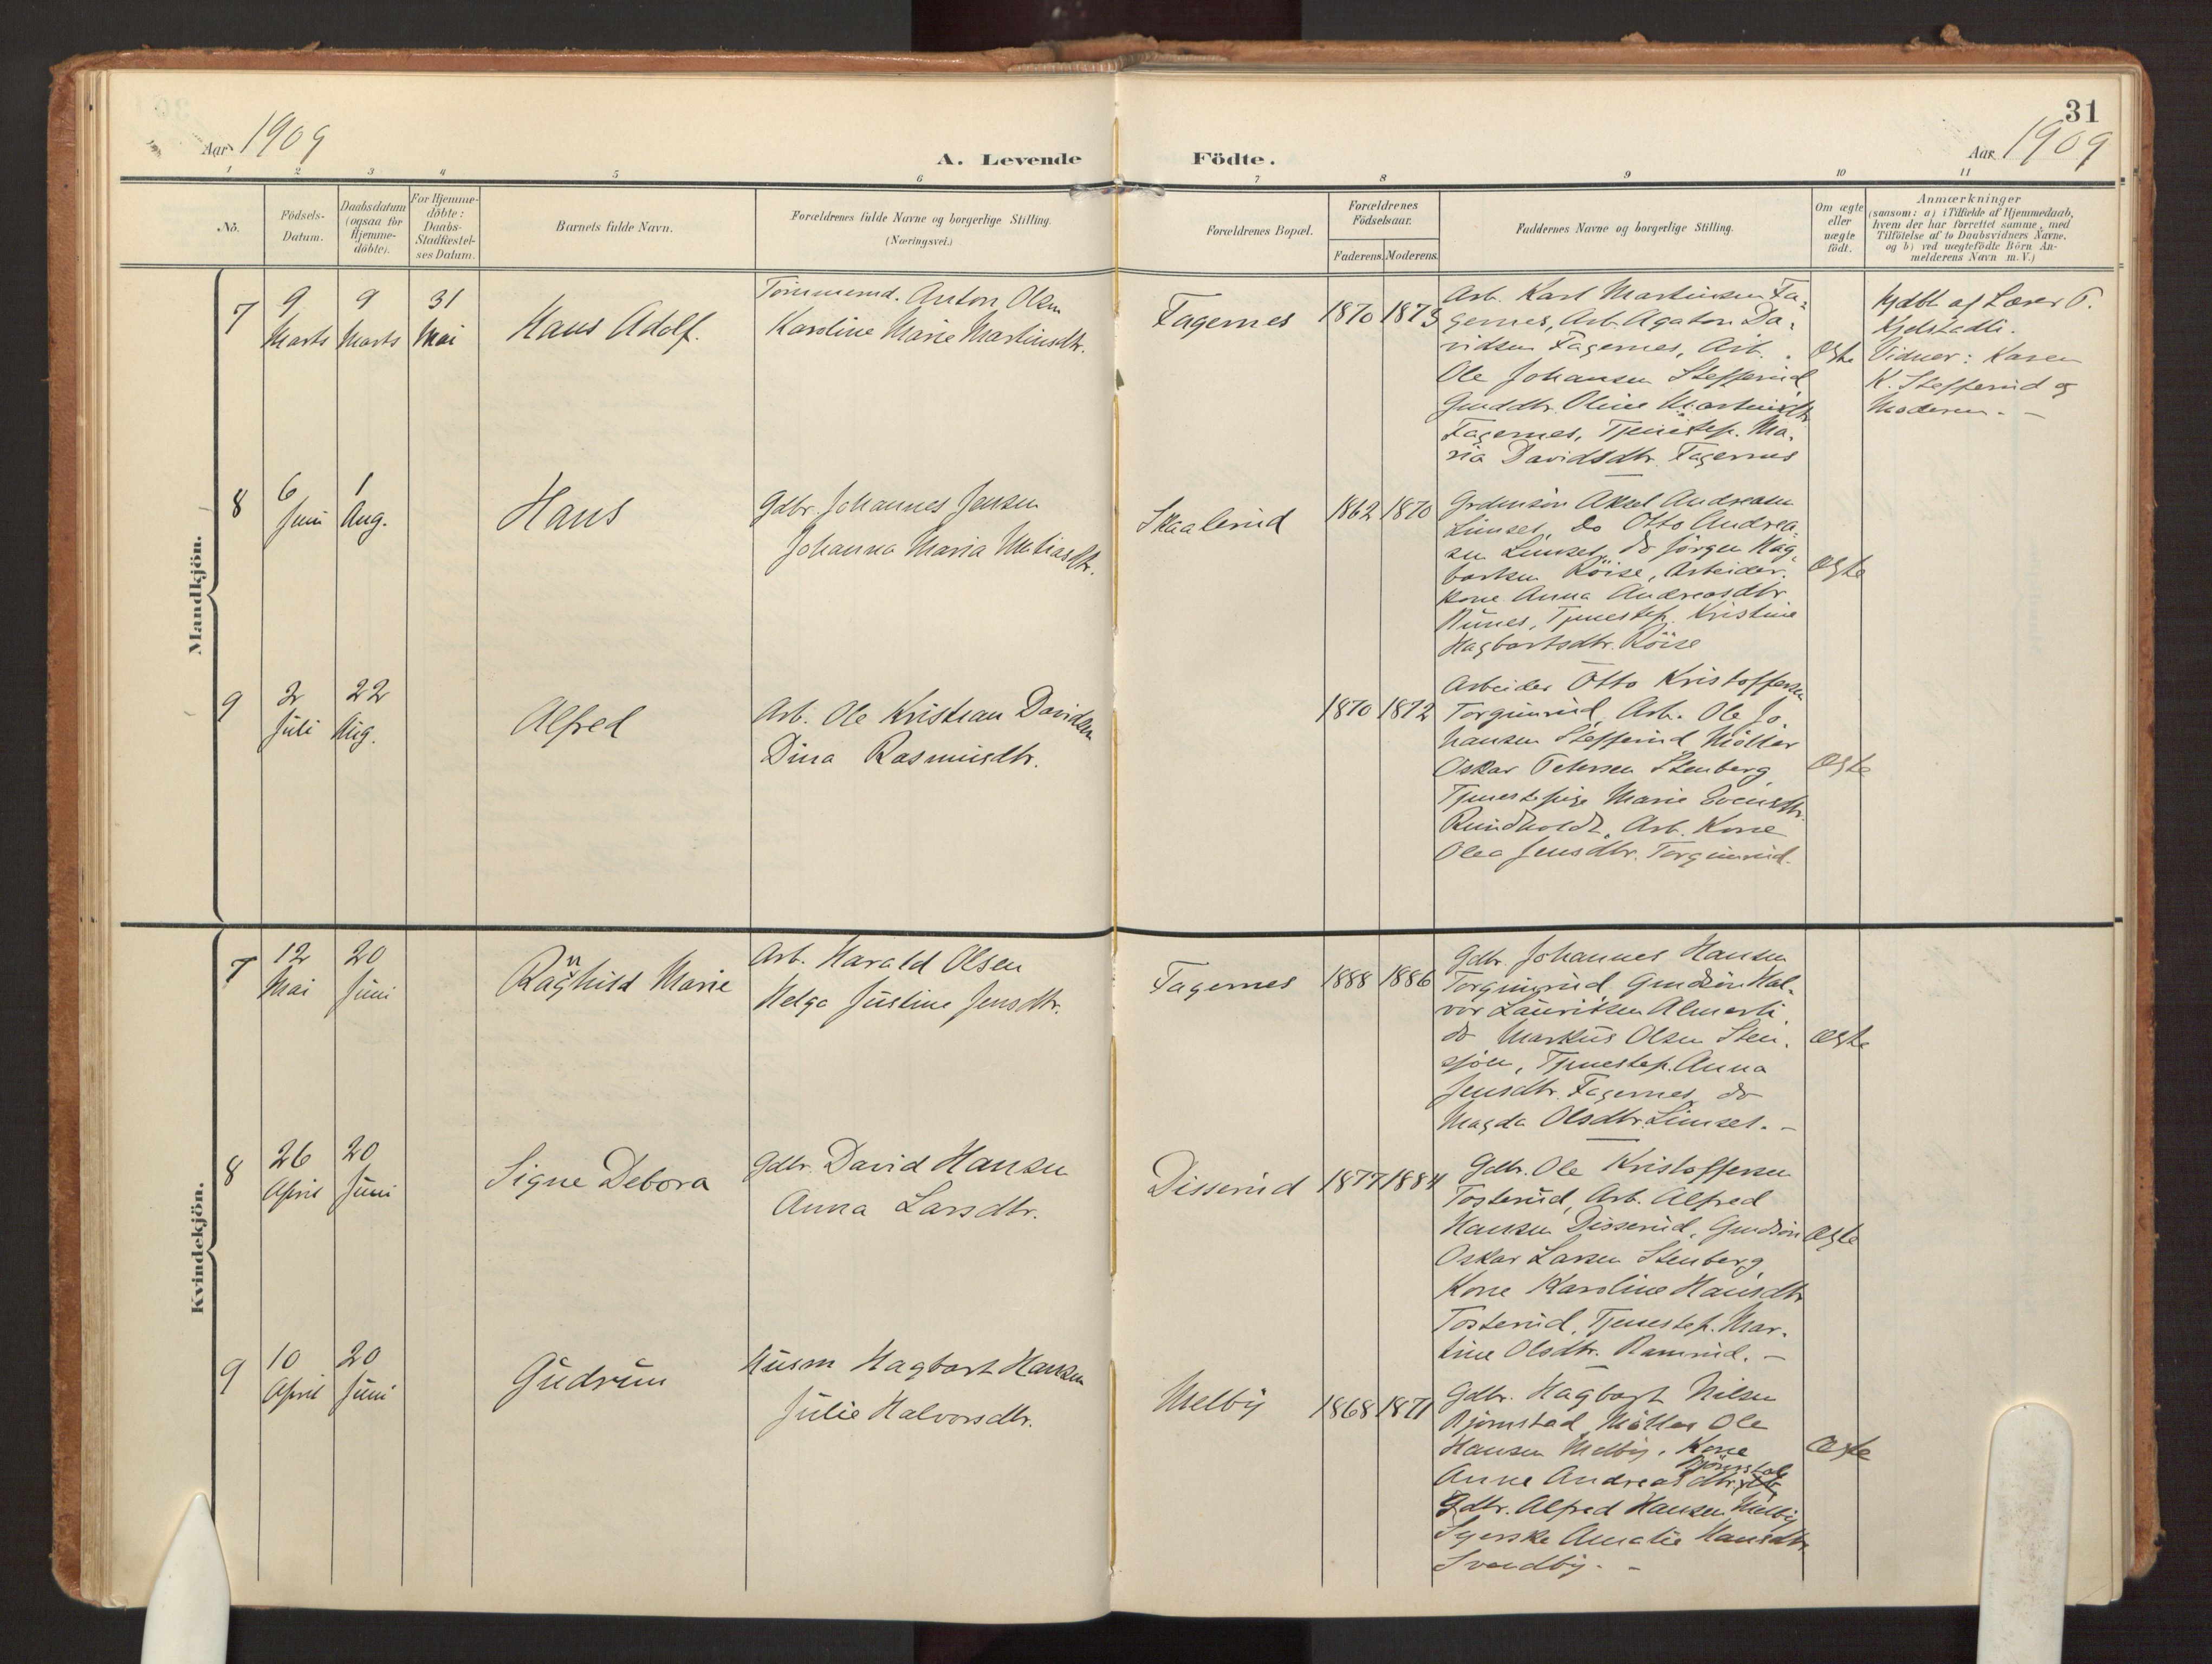 31
Aar 1909
A. Levende Födte.
Aar 1909
1 2 3 4 5 6 7 8 9 10 11
No.
Födsels-
Datum.
Daabsdatum
(ogsaa for
Hjemme-
döbte).
For Hjemme-
döbte:
Daabs-
Stadfestel-
ses Datum.
Barnets fulde Navn.
Forældrenes fulde Navne og borgerlige Stilling.
(Næringsvei.)
Forældrenes Bopæl.
Forældrenes
Födselsaar.
Faderens. Moderens.
Faddernes Navne og borgerlige Stilling.
Om ægte
eller
uægte
födt.
Anmærkninger
(saasom: a) i Tilfælde af Hjemmedaab,
hvem der har forrettet samme, med
Tilföielse af to Daabsvidners Navne,
og b) ved uægtefödte Börn An-
melderens Navn m. V.)
Mandkjön.
7
9
Marts
9
Marts
31
Mai
Hans Adolf.
Tömmermd. Anton Olsen
Karoline Marie Martinsdtr.
Fagernes
1870 1873
Arb. Karl Martinsen Fa-
gernes, Arb. Agaton Da-
vidsen Fagernes, Arb.
Ole Johansen Stefferud
Gmddtr. Oline Martinsdtr
Fagernes, Tjenestep. Ma-
ria Davidsdtr. Fagernes
Ægte
hjdbt af Lærer P.
Kjelstadli.
Vidner: Karen
K. Stefferud og
Moderen. -
8
6
Juni
1
Aug.
Hans
Gdbr. Johannes Jensen
Johanna Maria Matiasdtr.
Skaalerud
1862 1870
Grdmsön Aksel Andreasen
Limset, do Otto Andrea-
sen Limset, do Jörgen Hag-
bartsen Röise, Arbeider-
kone Anna Andreasdtr
Runes, Tjenestep. Kristine
Hagbartsdtr. Röise
Ægte
9
2
Juli
22
Aug.
Alfred
Arb. Ole Kristian Davidsen
Dina Rasmusdtr.
1870 1872
Arbeider Otto Kristoffersen
Torgunrud, Arb. Ole Jo-
hansen Stefferud Möller
Oskar Petersen Stenberg
Tjenestepige Marie Evensdtr.
Rundholdt, Arb. Kone
Olea Jensdtr. Torgunrud.
Ægte
Kvindekjön.
7
12
Mai
20
Juni
Ragnhild Marie
Arb. Harald Olsen
Helga Justine Jensdtr.
Fagernes
1888 1886
Gdbr. Johannes Hansen
Torgunrud Gmdsön Hal-
vor Lauritsen Almerli
do Markus Olsen Sten-
sjön, Tjenestep. Anna
Jensdtr. Fagernes, do
Magda Olsdtr. Limset. -
Ægte
8
26
April
20
Juni
Signe Debora
Gdbr. David Hansen
Anna Larsdtr.
Disserud
1877 1884
Gdbr. Ole Kristoffersen
Tosterud, Arb. Alfred
Hansen Disserud, Gmdsön
Oskar Larsen Stenberg
Kone Karoline Hansdtr
Tosterud, Tjenestep. Mar-
tine Olsdtr. Ramrud. -
Ægte
9
10
April
20
Juni
Gudrun
Husm Hagbart Hansen
Julie Halvorsdtr.
Melby
1868 1871
Gdbr. Hagbart Nilsen
Björnstad Möller Ole
Hansen Melby, Kone
Anne Andreasdtr. Björnstad
Gdbr. Alfred Hansen Melby
Syerske Amalie Hansdtr
Svendby. -
Ægte